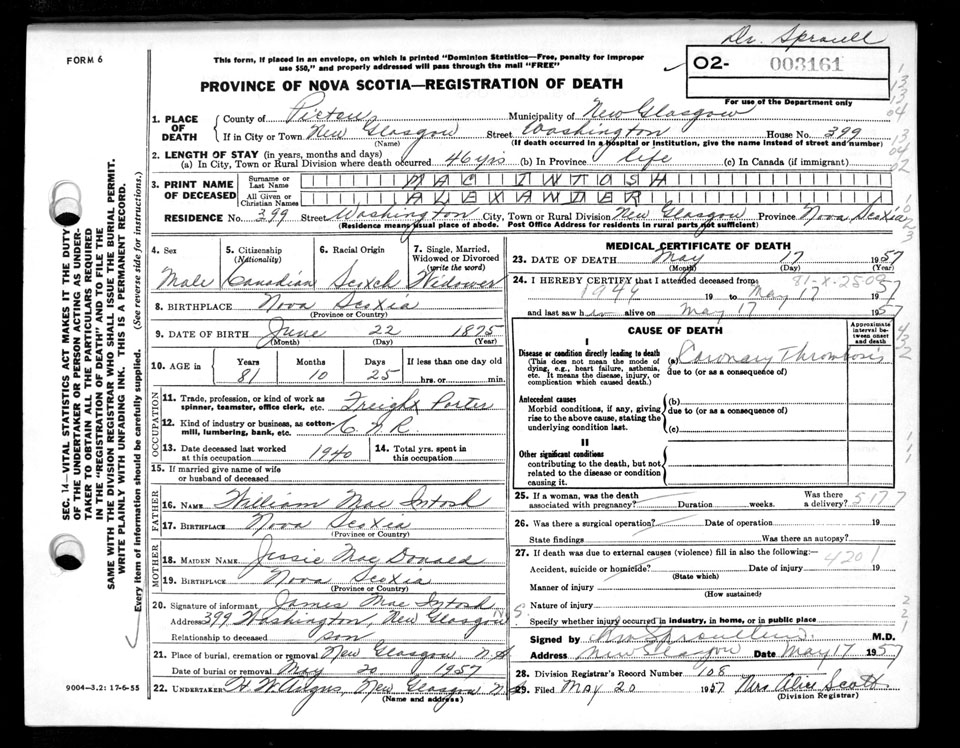 Dr. Sproull
FORM 6
This form, if placed in an envelope, on which is printed "Dominion Statistics—Free, penalty for improper
use $50," and properly addressed will pass through the mail "FREE!"
O2- 003161
PROVINCE OF NOVA SCOTIA—REGISTRATION OF DEATH
For use of the Department only
1. PLACE OF DEATH
County of Pictou Municipality of New Glasgow
If in City or Town New Glasgow Street Washington House No. 399
(Name) (If death occurred in a hospital or institution, give the name instead of street and number)
2. LENGTH OF STAY (in years, months and days)
(a) In City, Town or Rural Division where death occurred 46 yrs (b) In Province life (c) In Canada (if immigrant)
3. PRINT NAME OF DECEASED
Surname or Last Name MAC INTOSH
All Given or Christian Names ALEXANDER
RESIDENCE No. 399 Street Washington City, Town or Rural Division New Glasgow Province Nova Scotia
(Residence means usual place of abode. Post Office Address for residents in rural parts not sufficient)
4. Sex Male
5. Citizenship (Nationality) Canadian
6. Racial Origin Scotch
7. Single, Married, Widowed or Divorced (write the word) Widower
8. BIRTHPLACE Nova Scotia
(Province or Country)
9. DATE OF BIRTH June 22 1875
(Month) (Day) (Year)
10. AGE in Years 81 Months 10 Days 25 If less than one day old
hrs. or min.
OCCUPATION
11. Trade, profession, or kind of work as
spinner, teamster, office clerk, etc. Freight Porter
12. Kind of industry or business, as cotton-
mill, lumbering, bank, etc. C N R
13. Date deceased last worked
at this occupation 1940
14. Total yrs. spent in
this occupation
15. If married give name of wife
or husband of deceased
FATHER
16. NAME William Mac Intosh
17. BIRTHPLACE Nova Scotia
(Province or Country)
MOTHER
18. MAIDEN NAME Jessie Mac Donald
19. BIRTHPLACE Nova Scotia
(Province or Country)
20. Signature of informant James Mac Intosh
Address 399 Washington, New Glasgow N.S.
Relationship to deceased son
21. Place of burial, cremation or removal New Glasgow N.S.
Date of burial or removal May 20 1957
22. UNDERTAKER New Glasgow N.S.
(Name and address)
MEDICAL CERTIFICATE OF DEATH
23. DATE OF DEATH May 17 1957
(Month) (Day) (Year)
24. I HEREBY CERTIFY that I attended deceased from
19 to May 17 1957
and last saw h im alive on May 17 1957
CAUSE OF DEATH
Approximate interval between onset and death
I
Disease or condition directly leading to death
(This does not mean the mode of
dying, e.g., heart failure, asthenia,
etc. It means the disease, injury, or
complication which caused death.)
(a) Coronary Thrombosis
due to (or as a consequence of)
Antecedent causes
Morbid conditions, if any, giving
rise to the above cause, stating the
underlying condition last.
(b)
due to (or as a consequence of)
(c)
II
Other significant conditions
contributing to the death, but not
related to the disease or condition
causing it.
25. If a woman, was the death
associated with pregnancy? Duration weeks. Was there
a delivery? 5177
26. Was there a surgical operation? Date of operation 19
State findings Was there an autopsy?
27. If death was due to external causes (violence) fill in also the following:—
4201
Accident, suicide or homicide? Date of injury 19
(State which)
Manner of injury
(How sustained)
Nature of injury
Specify whether injury occurred in industry, in home, or in public place
Signed by M.D.
Address New Glasgow Date May 17 1957
28. Division Registrar's Record Number 108
29. Filed May 20 1957 Mrs Alice Scott
(Division Registrar)
SEC. 14—VITAL STATISTICS ACT MAKES IT THE DUTY
OF THE UNDERTAKER OR PERSON ACTING AS UNDER-
TAKER TO OBTAIN ALL THE PARTICULARS REQUIRED
IN THE "REGISTRATION OF DEATH" AND TO FILE THE
SAME WITH THE DIVISION REGISTRAR WHO SHALL ISSUE THE BURIAL PERMIT.
WRITE PLAINLY WITH UNFADING INK. THIS IS A PERMANENT RECORD.
Every item of information should be carefully supplied. (See reverse side for instructions.)
9004-3.2: 17-6-55